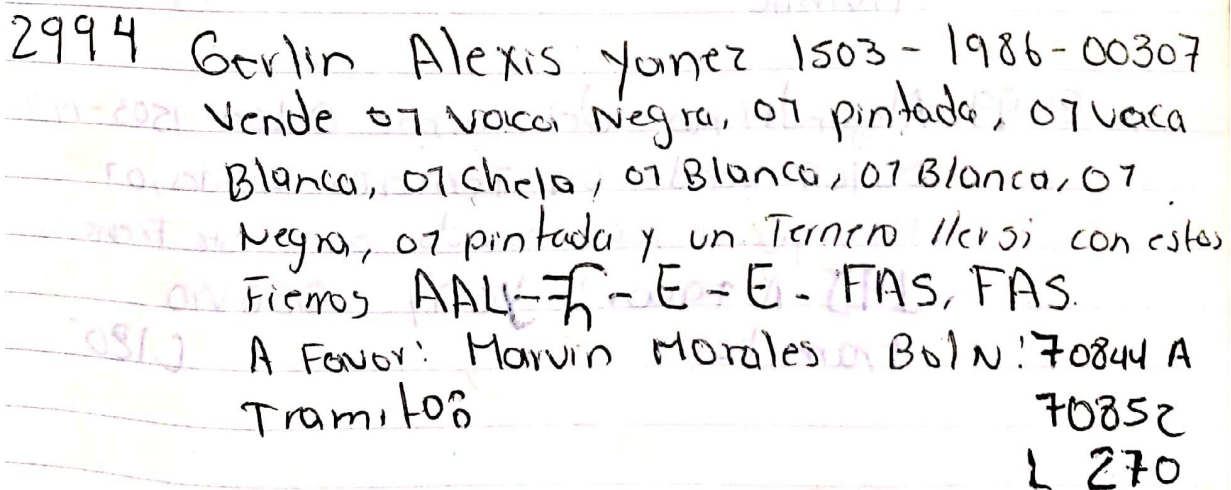 2994 Gerlin Alexis Yanez 1503-1986-00307
Vende 01 vaca Negra, 01 pintada, 01 vaca
Blanca, 01 chela, 01 Blanca, 01 Blanca, 01
Negra, 01 pintada y un Ternero llersi con estos
Fierros AAL - - E - E - FAS, FAS.
A Favor: Marvin Morales Bol N: 70844 A
Tramitos 70852
L 270